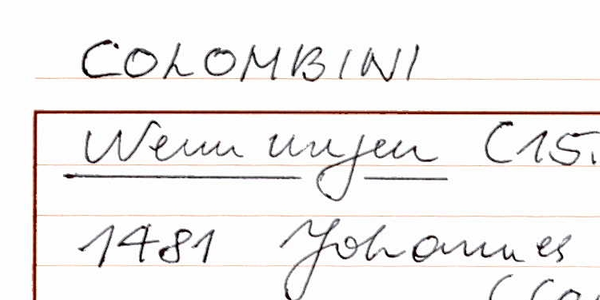 COLOMBINI
Wennungen (15.
1481 Johannes